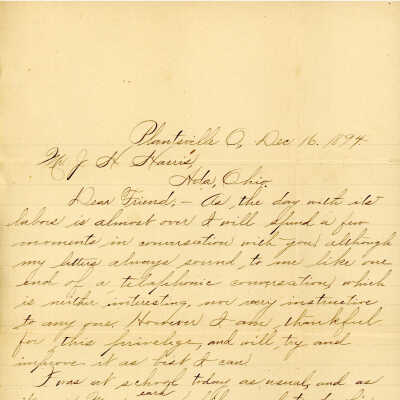 Plantsville O, Dec 16. 1894.
Mr J. H. Harris,
Ada, Ohio.
Dear Friend; — As the day with its
labors is almost over I will spend a few
moments in conversation with you, although
my letters always sound to me like one
end of a telaphonic conversation, which
is neither interesting, nor very instructive
to any one. However I am thankful
for this privelige, and will, try and
improve it as best I can.
I was at school today as usual, and as